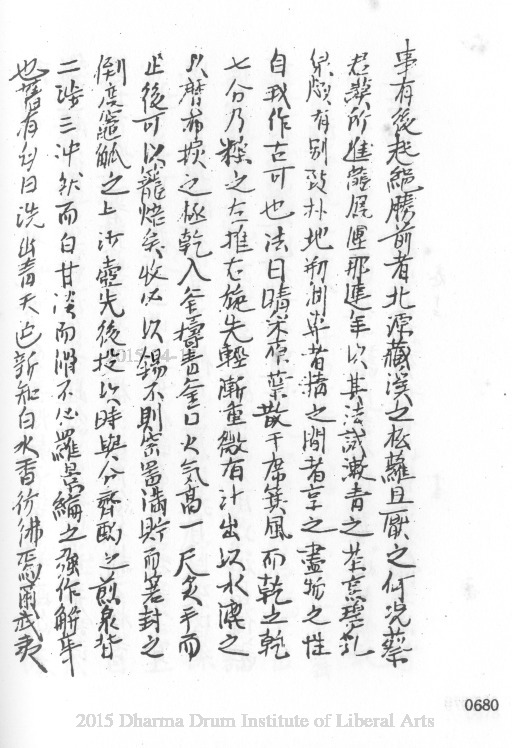 事有後起能勝前者北源藏溪之松蘿且厭之何況蔡
君謨所進龍鳳團那連年以其法試漱青之茶烹瑩乳
泉頗有別致朴地初泪草者精之間者享之盡物之性
自我作古可也法日晴采原葉散于席箕風而乾之乾
七分乃揉之左推右施先輕漸重微有汁出以水灑之
以磨布按之極乾入釜擣青釜口火气高一尺炙手而
止後可以籠焙矣收必以錫不則瓷器滿貯而箬封之
倒度竈觚之上沙壺先後投以時與分齊酌之煎泉皆
二沸三沖然而白甘淡而滑不必羅景綸之強作解事
也舊有句曰洗出青天色新知白水香彷彿焉爾武夷
0680
2015 Dharma Drum Institute of Liberal Arts